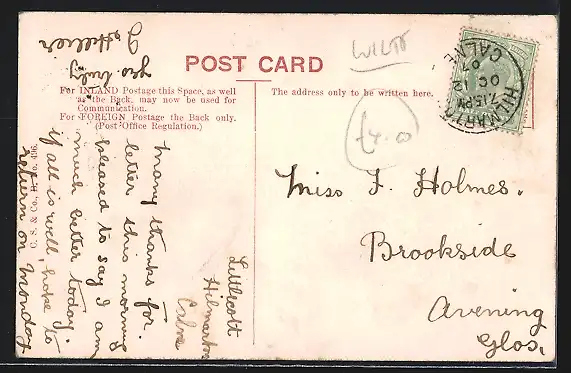 POST CARD
For INLAND Postage this Space, as well
as the Back, may now be used for
Communication.
For FOREIGN Postage the Back only.
(Post Office Regulation.)
The address only to be written here.
WILTS
£4.0
HILMARTON
CALNE
7.15PM
OC 12
07
Miss F. Holmes.
Brookside
Avening
Glos.
Littlecott
Hilmarton
Calne
many thanks for
letter this morning
pleased to say I am
much better today.
if all is well, hope to
return on Monday
yrs truly
J. Hillier
C. S. & Co., H. No. 496.